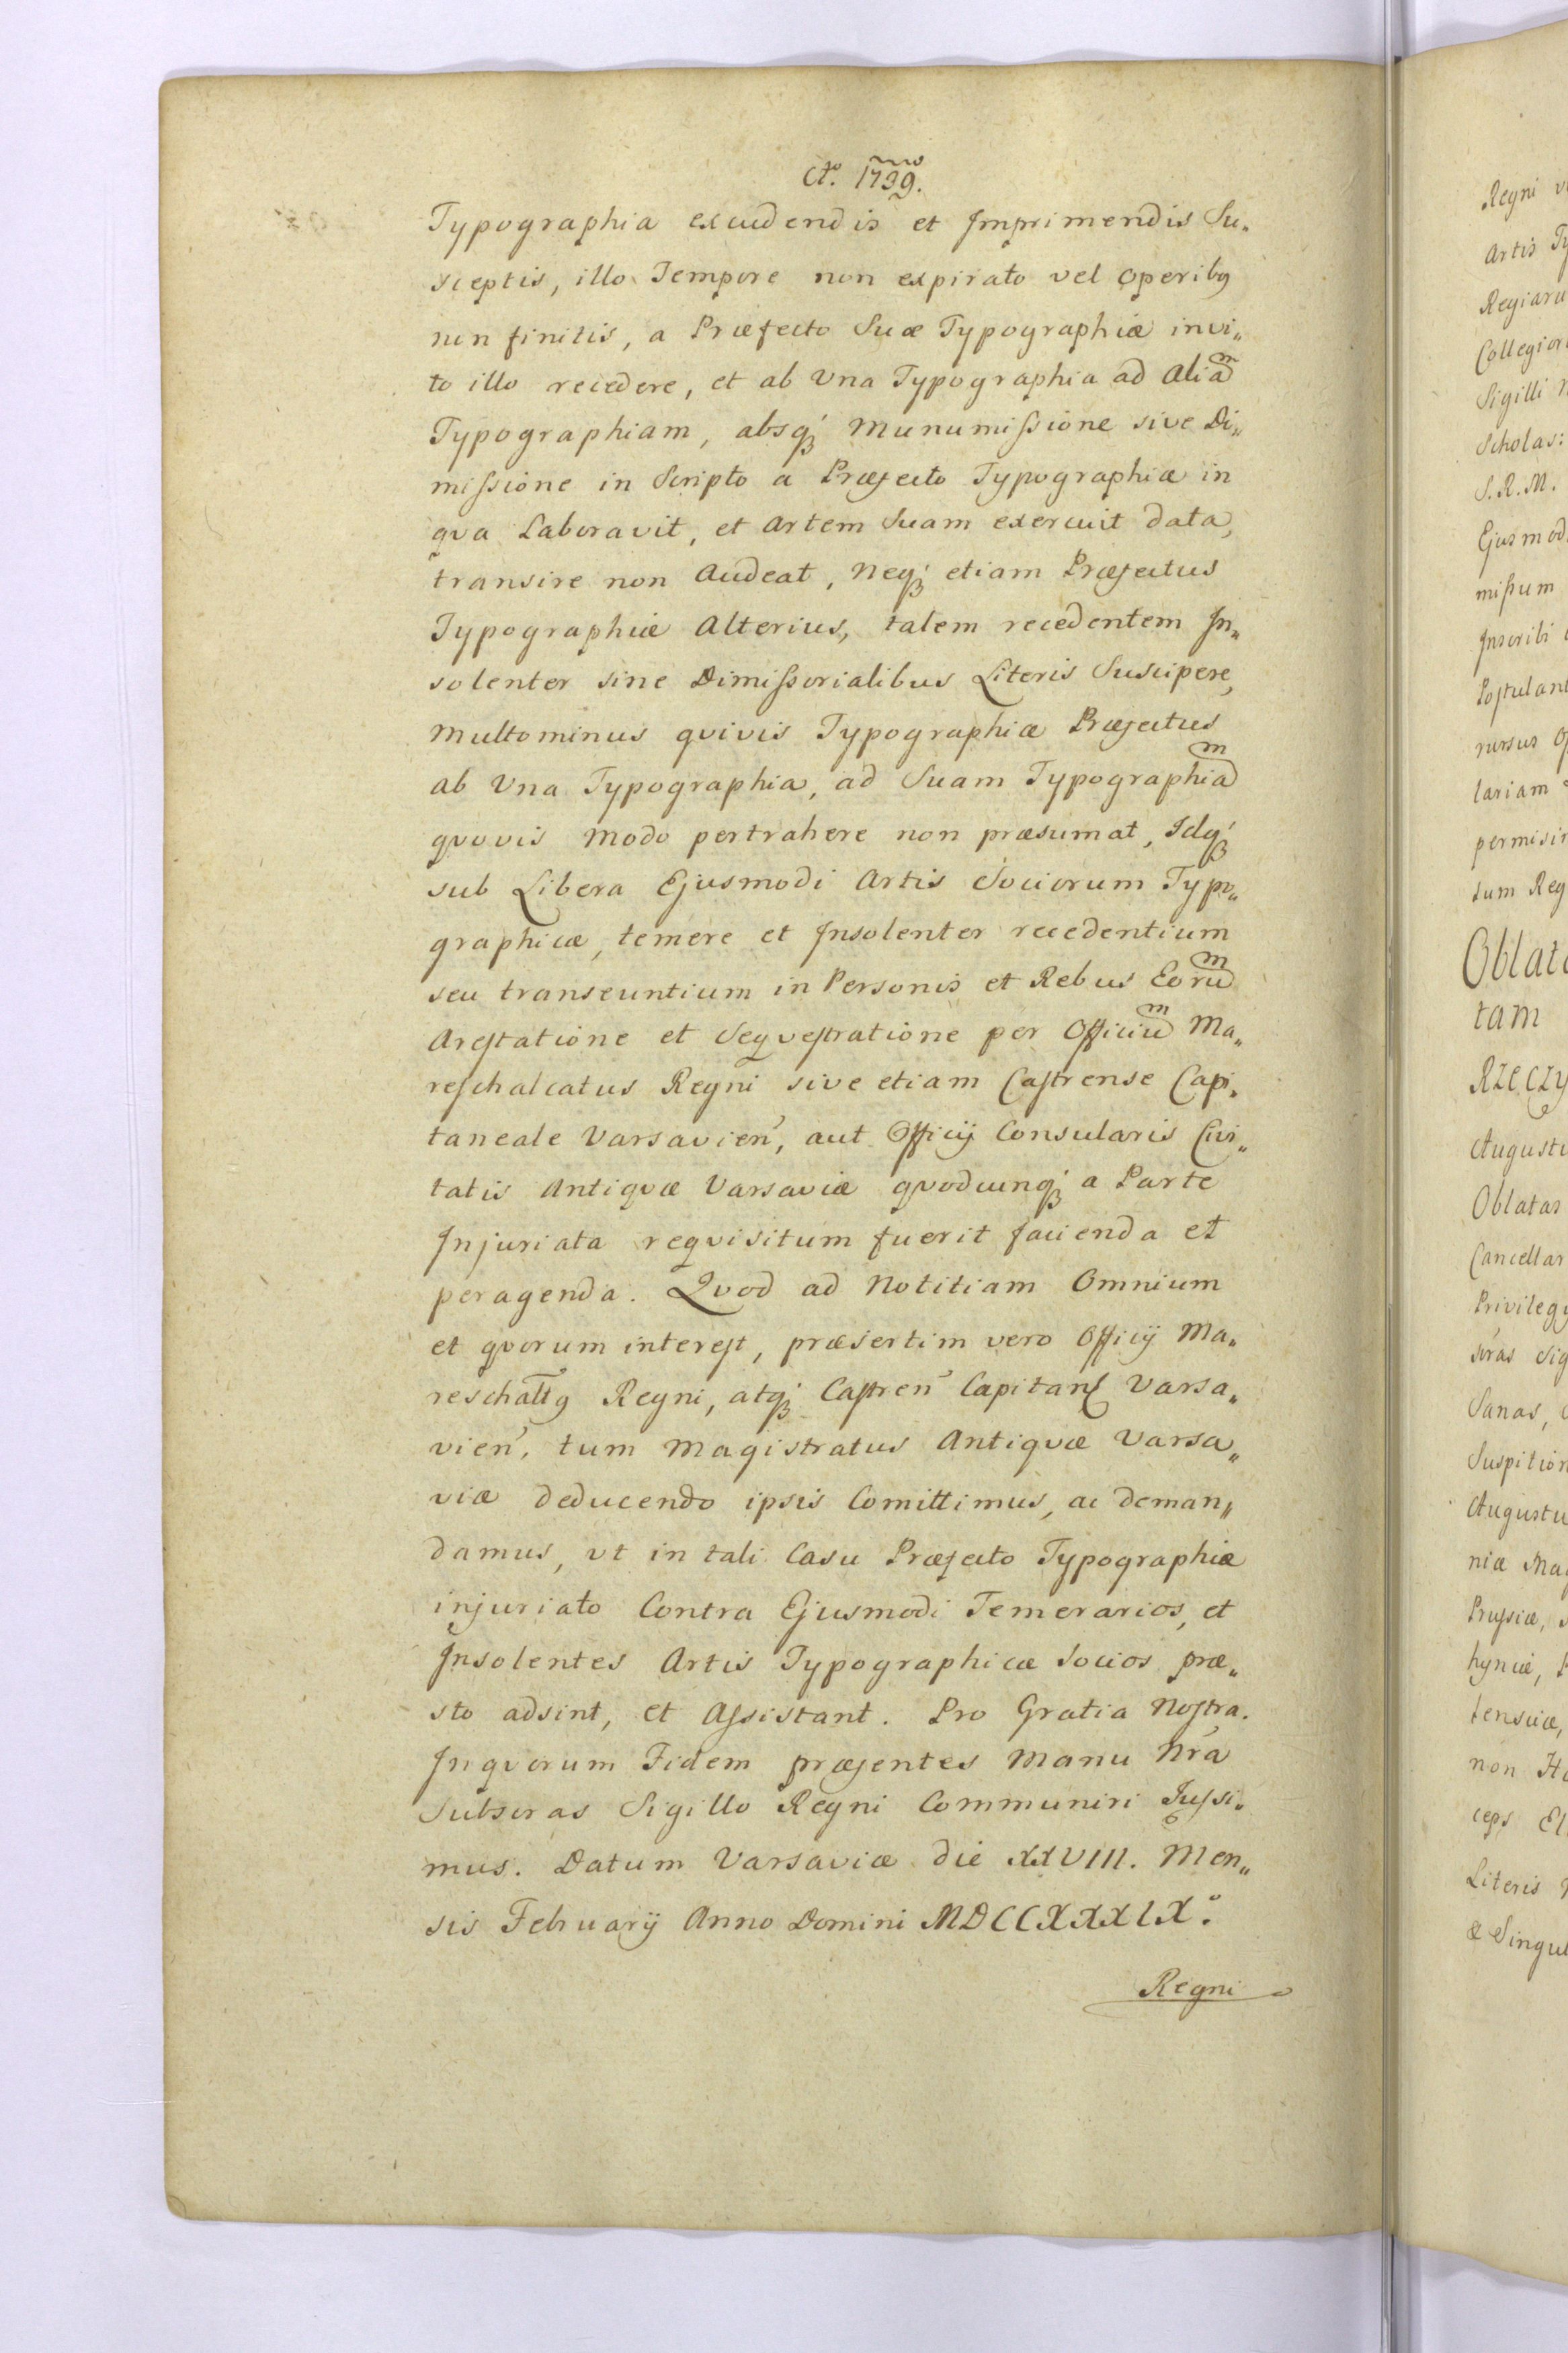 Ao. 1739.
Typographia excudendis et Imprimendis Su„
sceptis, illo Tempore non expirato vel Operibq
non finitis, a Præfecto Suæ Typographiæ invi„
to illo recedere, et ab Una Typographia ad Aliam
Typographiam, absq́ Munumissione sive Di„
missione in Scripto a Præfecto Typographiæ in
qva Laboravit, et Artem Suam exercuit data,
transire non Audeat, Neq́ etiam Præfectus
Typographiæ Alterius, talem recedentem In„
solenter sine Dimissorialibus Literis Suscipere,
Multominus qvivis Typographiæ Præfectus
ab Una Typographia, ad Suam Typographiam
qvovis Modo pertrahere non præsumat, Idq́
sub Libera Ejusmodi Artis Sociorum Typo„
graphicæ, temere et Insolenter recedentium
seu transeuntium in Personis et Rebus Eorum
Arestatione et Seqvestratione per Officium Ma„
reschalcatus Regni sive etiam Castrense Capi„
taneale Varsavien̄, aut Officij Consularis Civi„
tatis Antiqvæ Varsaviæ qvodcunq́ a Parte
Injuriata reqvisitum fuerit facienda et
peragenda. Qvod ad Notitiam Omnium
et qvorum interest, præsertim vero Officij Ma„
reschaltq Regni, atq́ Castren̄ Capitan̄ Varsa„
vien̄, tum Magistratus Antiqvæ Varsa„
viæ deducendo ipsis Comittimus, ac deman„
damus, ut in tali Casu Præfecto Typographiæ
injuriato Contra Ejusmodi Temerarios, et
Insolentes Artis Typographicæ Socios præ„
sto adsint, et Assistant. Pro Gratia Nostra.
Inqvorum Fidem præsentes Manu Nr̄a
Subscras Sigillo Regni Communiri Jussi„
mus. Datum Varsaviæ die XXVIII. Men„
sis February Anno Domini MDCCXXXIX.°
Regni
Regni
Artis
Regiaru
Collegior
Sigilli
Scholas:
S. R. M.
Ejusmod
missum
Inscribi
Postulant
rursus
lariam
permisi
tum Reg
Oblat
tam
RZECZY
Augusti
Oblatas
Cancellar
Privileg
Sanas,
Suspition
Augustu
niæ Mag
Prussiæ,
hyniæ,
tensiæ,
non
ceps El
Literis
& Singul